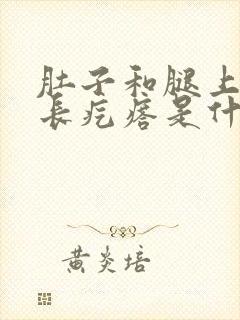 肚子和腿上
长疙瘩是什
黄炎培